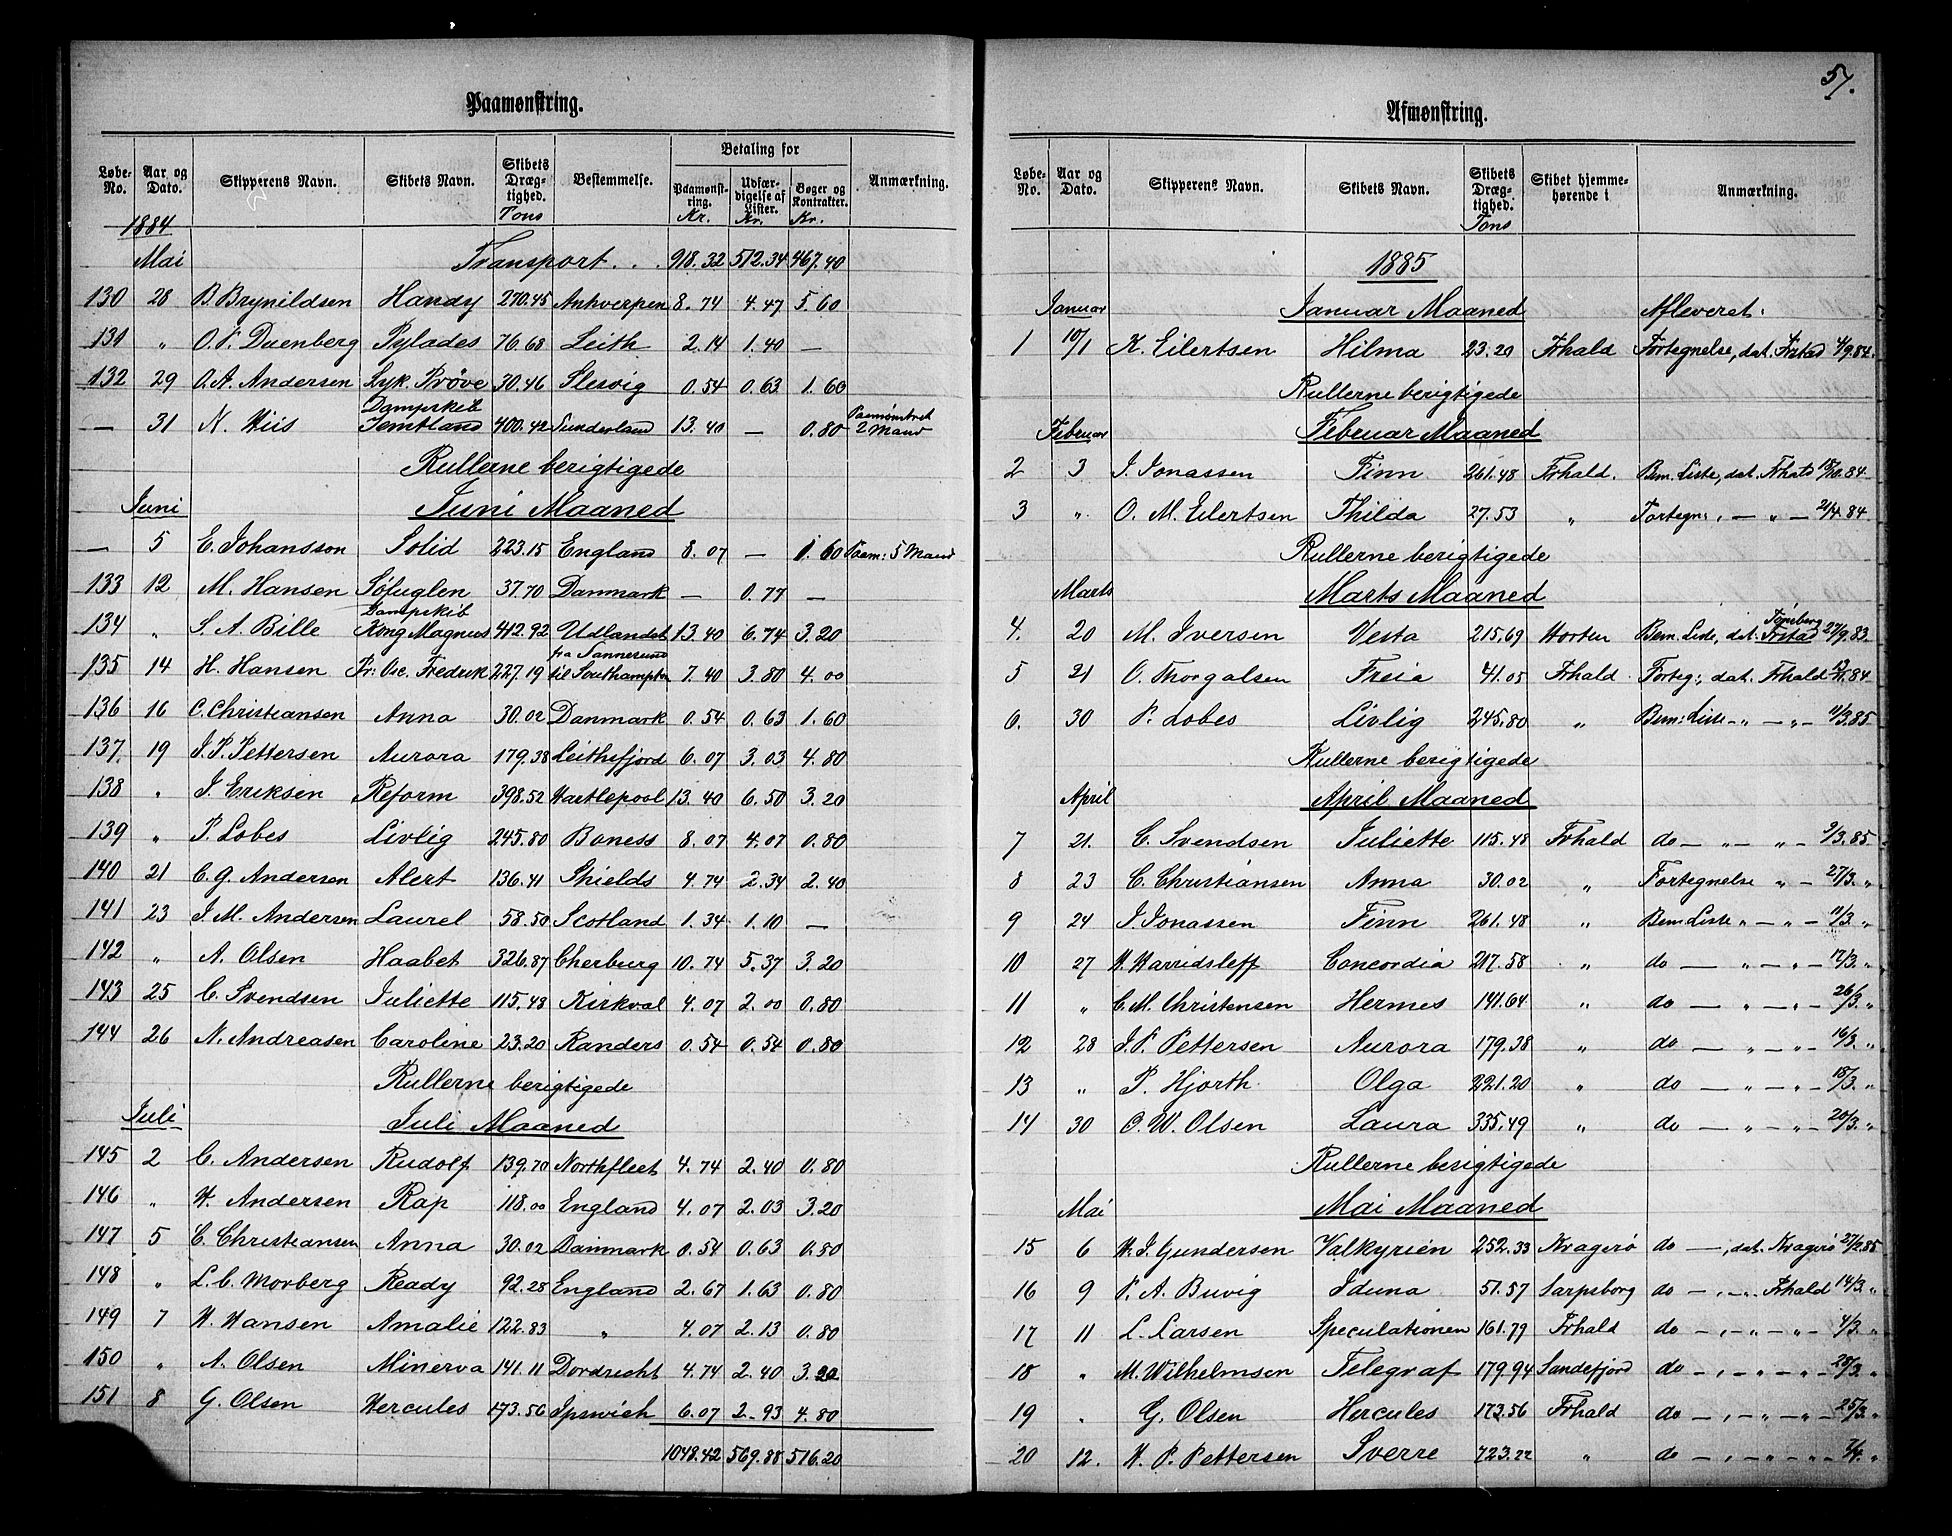 Paamønstring.
Løbe-No. | Aar og Dato. | Skipperens Navn. | Skibets Navn. | Skibets Dræg-tighed. Tons | Bestemmelse. | Betaling for | Paamønst-ring. Kr. | Udfær-digelse af Lister. Kr. | Bøger og Kontrakter. Kr. | Anmærkning.
1884
Mai Transport . . . 918.32 512.34 467.40
130 28 B. Brynildsen Handy 270.45 Anhverpen 8.74 4.47 5.60
131 „ O. P. Duenberg Pylades 76.68 Leith 2.14 1.40 —
132 29 O. A. Andersen Lyk. Prøve 30.46 Slesvig 0.54 0.63 1.60
— 31 N. Hiis Dampskib Jemtland 400.42 Sunderland 13.40 — 0.80 Paamønstret 2 Mand
Rullerne berigtigede
Juni Juni Maaned
— 5 E. Johansson Solid 223.15 England 8.07 — 1.60 Paam: 5 Mand
133 12 M. Hansen Søfuglen 37.70 Danmark — 0.77 —
134 „ S. A. Bille Dampskib Kong Magnus 412.92 Udlandet 13.40 6.74 3.20
135 14 H. Hansen Pr: Osc. Fredrik 227.19 fra Sannesund til Southampton 7.40 3.80 4.00
136 16 C. Christiansen Anna 30.02 Danmark 0.54 0.63 1.60
137. 19 J. P. Pettersen Aurora 179.38 Leithsfjord 6.07 3.03 4.80
138 „ J. Eriksen Reform 398.52 Hartlepool 13.40 6.50 3.20
139 „ P. Lobes Livlig 245.80 Boness 8.07 4.07 0.80
140 21 C. G. Andersen Alert 136.41 Shields 4.74 2.34 2.40
141 23 J. M. Andersen Laurel 58.50 Scotland 1.34 1.10 —
142 „ A. Olsen Haabet 326.87 Cherburg 10.74 5.37 3.20
143 25 C. Svendsen Juliette 115.48 Kirkval 4.07 2.00 0.80
144 26 N. Andreasen Caroline 23.20 Randers 0.54 0.54 0.80
Rullerne berigtigede
Juli Juli Maaned
145 2 C. Andersen Rudolf 139.70 Northfleet 4.74 2.40 0.80
146 „ H. Andersen Rap 118.00 England 4.07 2.03 3.20
147 5 C. Christiansen Anna 30.02 Danmark 0.54 0.63 0.80
148 „ L. C. Morberg Ready 92.28 England 2.67 1.63 0.80
149 7 H. Hansen Amalie 122.83 „ 4.07 2.13 0.80
150 „ A. Olsen Minerva 141.11 Dordrecht 4.74 2.40 3.20
151 8 G. Olsen Hercules 173.56 Ipswich 6.07 2.93 4.80
1048.42 569.88 516.20
57.
Afmønstring.
Løbe-No. | Aar og Dato. | Skipperens Navn. | Skibets Navn. | Skibets Dræg-tighed. Tons | Skibet hjemme-hørende i | Anmærkning.
1885
Januar Januar Maaned Afleveret.
1 10/1 K. Eilertsen Hilma 23.20 Frhald Fortegnelse, dat. Frstad 4/9.84.
Rullerne berigtigede
Februar Februar Maaned
2 3 J. Jonassen Finn 261.48 Frhald. Bem. Liste, dat. Frhald 18/10.84
3 „ O. M. Eilertsen Thilda 27.53 „ Fortegn: , — „ — 21/4.84
Rullerne berigtigede
Marts Marts Maaned
4. 20 M. Iversen Vesta 215.69 Horten Bem. Liste, dat. Tønsberg Frstad 27/9.83.
5 21 O. Thorgalsen Freia 41.05 Frhald Forteg:, dat. Frhald
6. 30 P. Lobes Livlig 245.80 „ Bem: Liste — „ — „ — 11/3.85
Rullerne berigtigede
April April Maaned
7 21. C. Svendsen Juliette 115.48 Frhald do — „ — „ — 9/3.85
8 23 C. Christiansen Anna 30.02 „ Fortegnelse „ — 27/3. „
9 24 J. Jonassen Finn 261.48 „ Bem. Liste „ — „ — 11/3. „
10 27 H. Harridsleff Concordia 217.58 „ do — „ — „ — 17/3. „
11 „ C. M. Christensen Hermes 141.64 „ do — „ — „ — 26/3. „
12 28 J. P. Pettersen Aurora 179.38 „ do — „ — „ — 16/3. „
13 „ P. Hjorth Olga 221.20 „ do — „ — „ — 18/3. „
14 30 O. W. Olsen Laura 335.49 „ do — „ — „ — 20/3. „
Rullerne berigtigede
Mai Mai Maaned
15 6 H. J. Gundersen Valkyrien 252.33 Kragerø do —, dat. Kragerø 27/2.85
16 9 P. A. Buvig Iduna 51.57 Sarpsborg do — „ — „ Frhald 14/3. „
17 11 L. Larsen Speculationen 161.79 Frhald do — „ — „ — „ — 4/3. „
18 „ M. Wilhelmsen Telegraf 179.94 Sandefjord do — „ — „ — „ — 28/3. „
19 „ G. Olsen Hercules 173.56 Frhald do — „ — „ — „ — 25/3. „
20 12. H. P. Pettersen Sverre 723.22 „ do — „ — „ — „ — 7/4. „